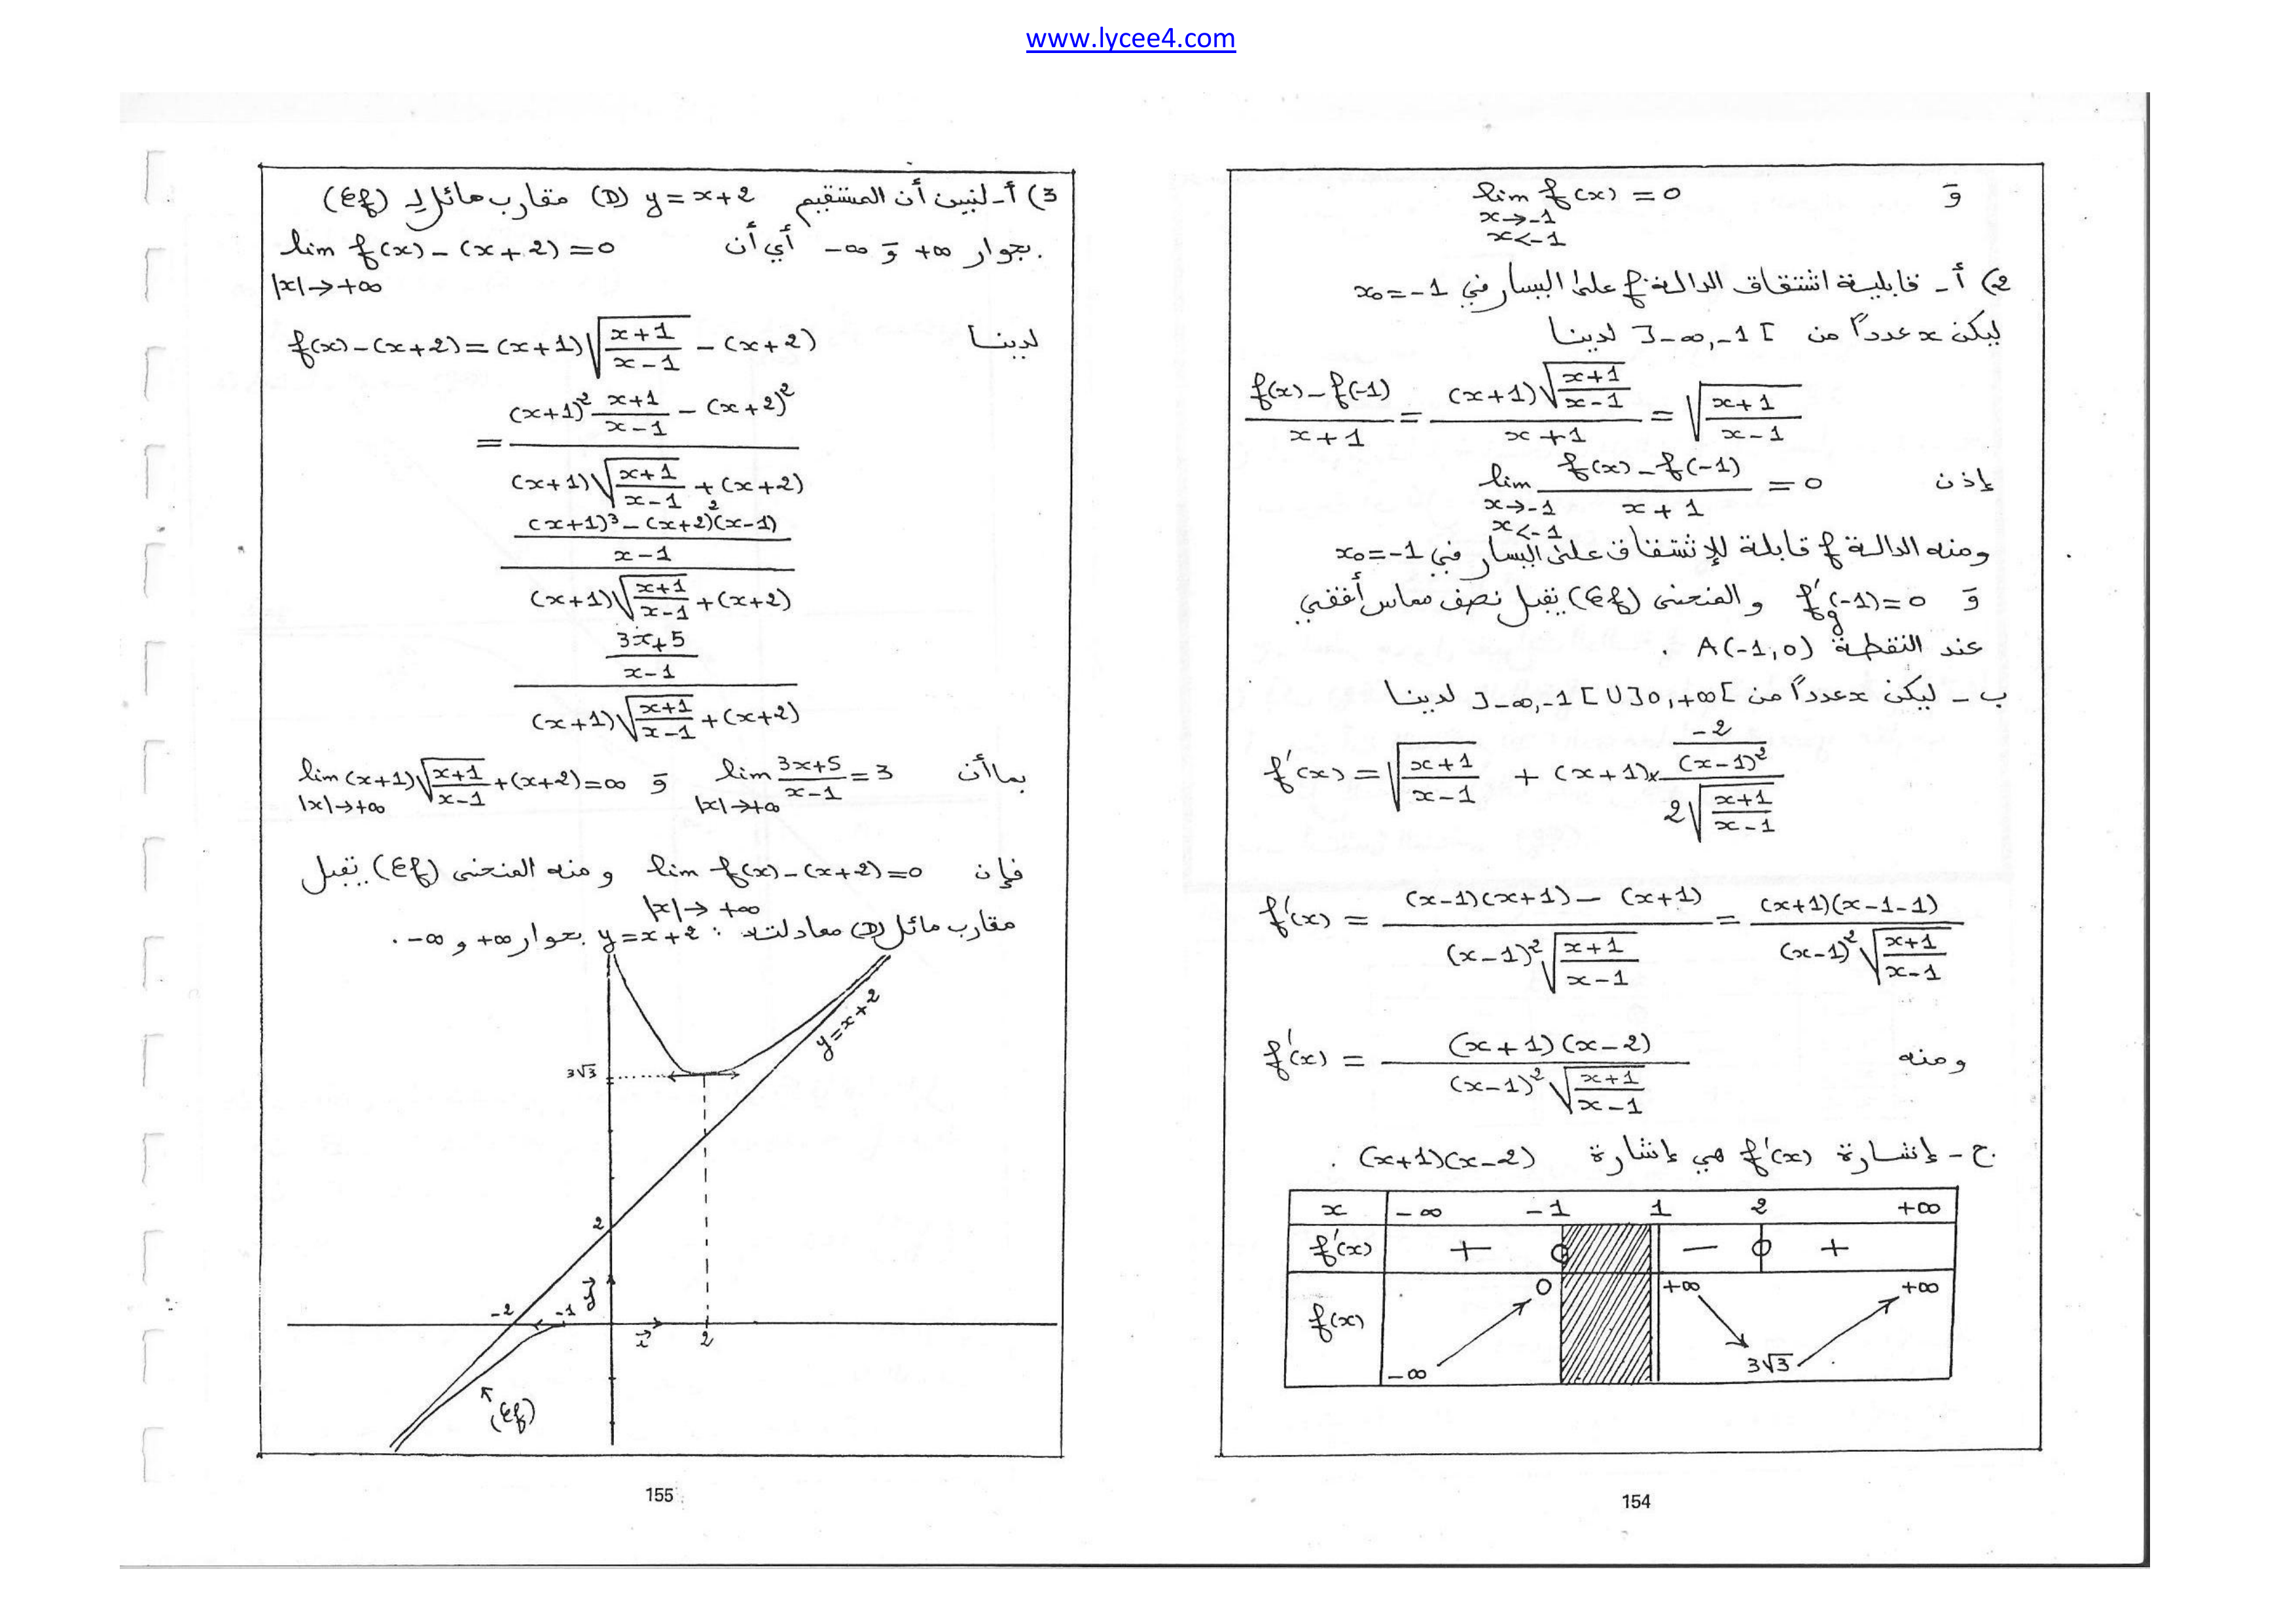 www.lycee4.com
و lim f(x) = 0
x→-1
x<-1
2) أ- قابلية اشتقاق الدالة f على اليسار في x₀=-1
ليكن x عدداً من ]-∞,-1[ لدينا
(f(x)-f(-1))/(x+1) = ((x+1)√((x+1)/(x-1)))/(x+1) = √((x+1)/(x-1))
إذن lim (f(x)-f(-1))/(x+1) = 0
x→-1
x<-1
ومنه الدالة f قابلة للإشتقاق على اليسار في x₀=-1
و f'g(-1)=0 والمنحنى (Cf) يقبل نصف مماس أفقي
عند النقطة A(-1,0) .
ب - ليكن x عدداً من ]-∞,-1[ U ]0,+∞[ لدينا
f'(x) = √((x+1)/(x-1)) + (x+1)×(-2/(x-1)²)/(2√((x+1)/(x-1)))
f'(x) = ((x-1)(x+1)-(x+1))/((x-1)²√((x+1)/(x-1))) = ((x+1)(x-1-1))/((x-1)²√((x+1)/(x-1)))
ومنه f'(x) = ((x+1)(x-2))/((x-1)²√((x+1)/(x-1)))
ج - إشارة f'(x) هي إشارة (x+1)(x-2) .
x -∞ -1 1 2 +∞
f'(x) + 0 - 0 +
f(x) -∞ 0 +∞ 3√3 +∞
154
3) أ- لنبين أن المستقيم (D) y=x+2 مقارب مائل لـ (Cf)
بجوار +∞ و -∞ أي أن lim f(x)-(x+2)=0
|x|→+∞
لدينا f(x)-(x+2)=(x+1)√((x+1)/(x-1)) - (x+2)
= ((x+1)² (x+1)/(x-1) - (x+2)²)/((x+1)√((x+1)/(x-1)) + (x+2))
(((x+1)³-(x+2)²(x-1))/(x-1))/((x+1)√((x+1)/(x-1))+(x+2))
((3x+5)/(x-1))/((x+1)√((x+1)/(x-1))+(x+2))
بما أن lim (3x+5)/(x-1) = 3 و lim (x+1)√((x+1)/(x-1))+(x+2)=∞
|x|→+∞ |x|→+∞
فإن lim f(x)-(x+2)=0 ومنه المنحنى (Cf) يقبل
|x|→+∞
مقارب مائل (D) معادلته : y=x+2 بجوار +∞ و -∞ .
y=x+2
3√3
2
j
-2 -1
i 2
(Cf)
155